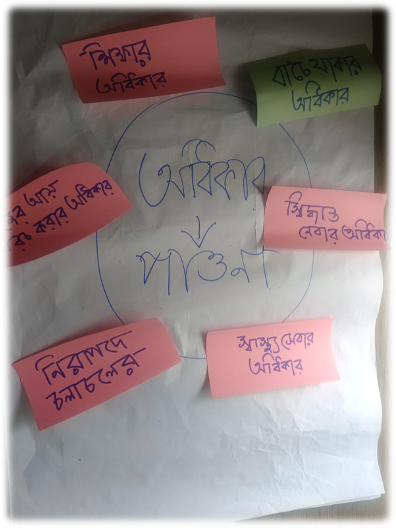 শিক্ষার
অধিকার
বাঁচে থাকার
অধিকার
অধিকার
পাওনা
আয়
করার অধিকার
সিদ্ধান্ত
নেবার অধিকার
নিরাপদে
চলাচলের
স্বাস্থ্য সেবার
অধিকার